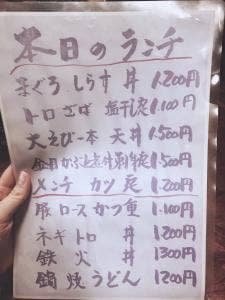 本日のランチ
まぐろ しらす 丼 1.200円
トロさば 塩干定 1.100円
大えび一本 天丼 1.500円
金目かぶと煮付 定 1.500円
メンチ カツ 定 1.200円
豚ロースかつ重 1.100円
ネギトロ 丼 1200円
鉄火 丼 1300円
鍋焼うどん 1200円